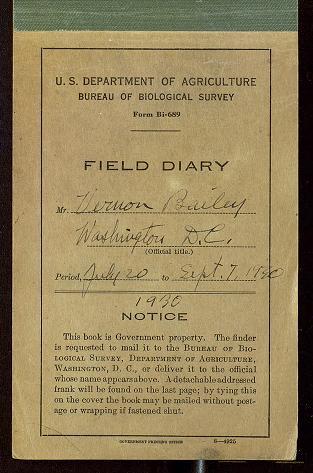 U. S. DEPARTMENT OF AGRICULTURE
BUREAU OF BIOLOGICAL SURVEY
Form Bi-689
FIELD DIARY
Mr. Vernon Bailey
Washington D.C.
(Official title.)
Period, July 20 to Sept. 7, 1930
1930
NOTICE
This book is Government property. The finder
is requested to mail it to the BUREAU OF BIO-
LOGICAL SURVEY, DEPARTMENT OF AGRICULTURE,
WASHINGTON, D. C., or deliver it to the official
whose name appears above. A detachable addressed
frank will be found on the last page; by tying this
on the cover the book may be mailed without post-
age or wrapping if fastened shut.
GOVERNMENT PRINTING OFFICE 8—4925